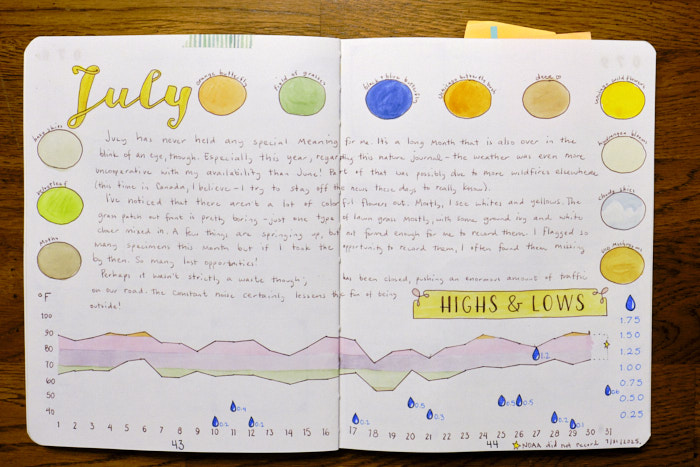 July
orange butterfly
field of grasses
black & blue butterfly
deer
hazy skies
hydrangea blooms
cloudy skies
moths
July has never held any special meaning for me. It's a long month that is also over in the
blink of an eye, though. Especially this year, regarding this nature journal - the weather was even more
uncooperative with my availability than June! Part of that was possibly due to more wildfires elsewhere
(this time in Canada, I believe - I try to stay off the news these days to really know).
I've noticed that there aren't a lot of colorful flowers out. Mostly, I see whites and yellows. The
grass patch out front is pretty boring - just one type of lawn grass mostly, with some ground ivy and white
clover mixed in. A few things are springing up, but not formed enough for me to record them. I flagged so
many specimens this month but if I took the opportunity to record them, I often found them missing
by then. So many lost opportunities!
Perhaps it wasn't strictly a waste though; has been closed, pushing an enormous amount of traffic
on our road. The constant noise certainly lessens the fun of being
outside!
HIGHS & LOWS
°F
100
90
80
70
60
50
40
1.75
1.50
1.25
1.00
0.75
0.50
0.25
1.2
0.2
0.4
0.2
0.1
0.5
0.3
0.5
0.5
0.2
0.1
1 2 3 4 5 6 7 8 9 10 11 12 13 14 15 16 17 18 19 20 21 22 23 24 25 26 27 28 29 30 31
43
44
NOAA did not record 7/31/2025.